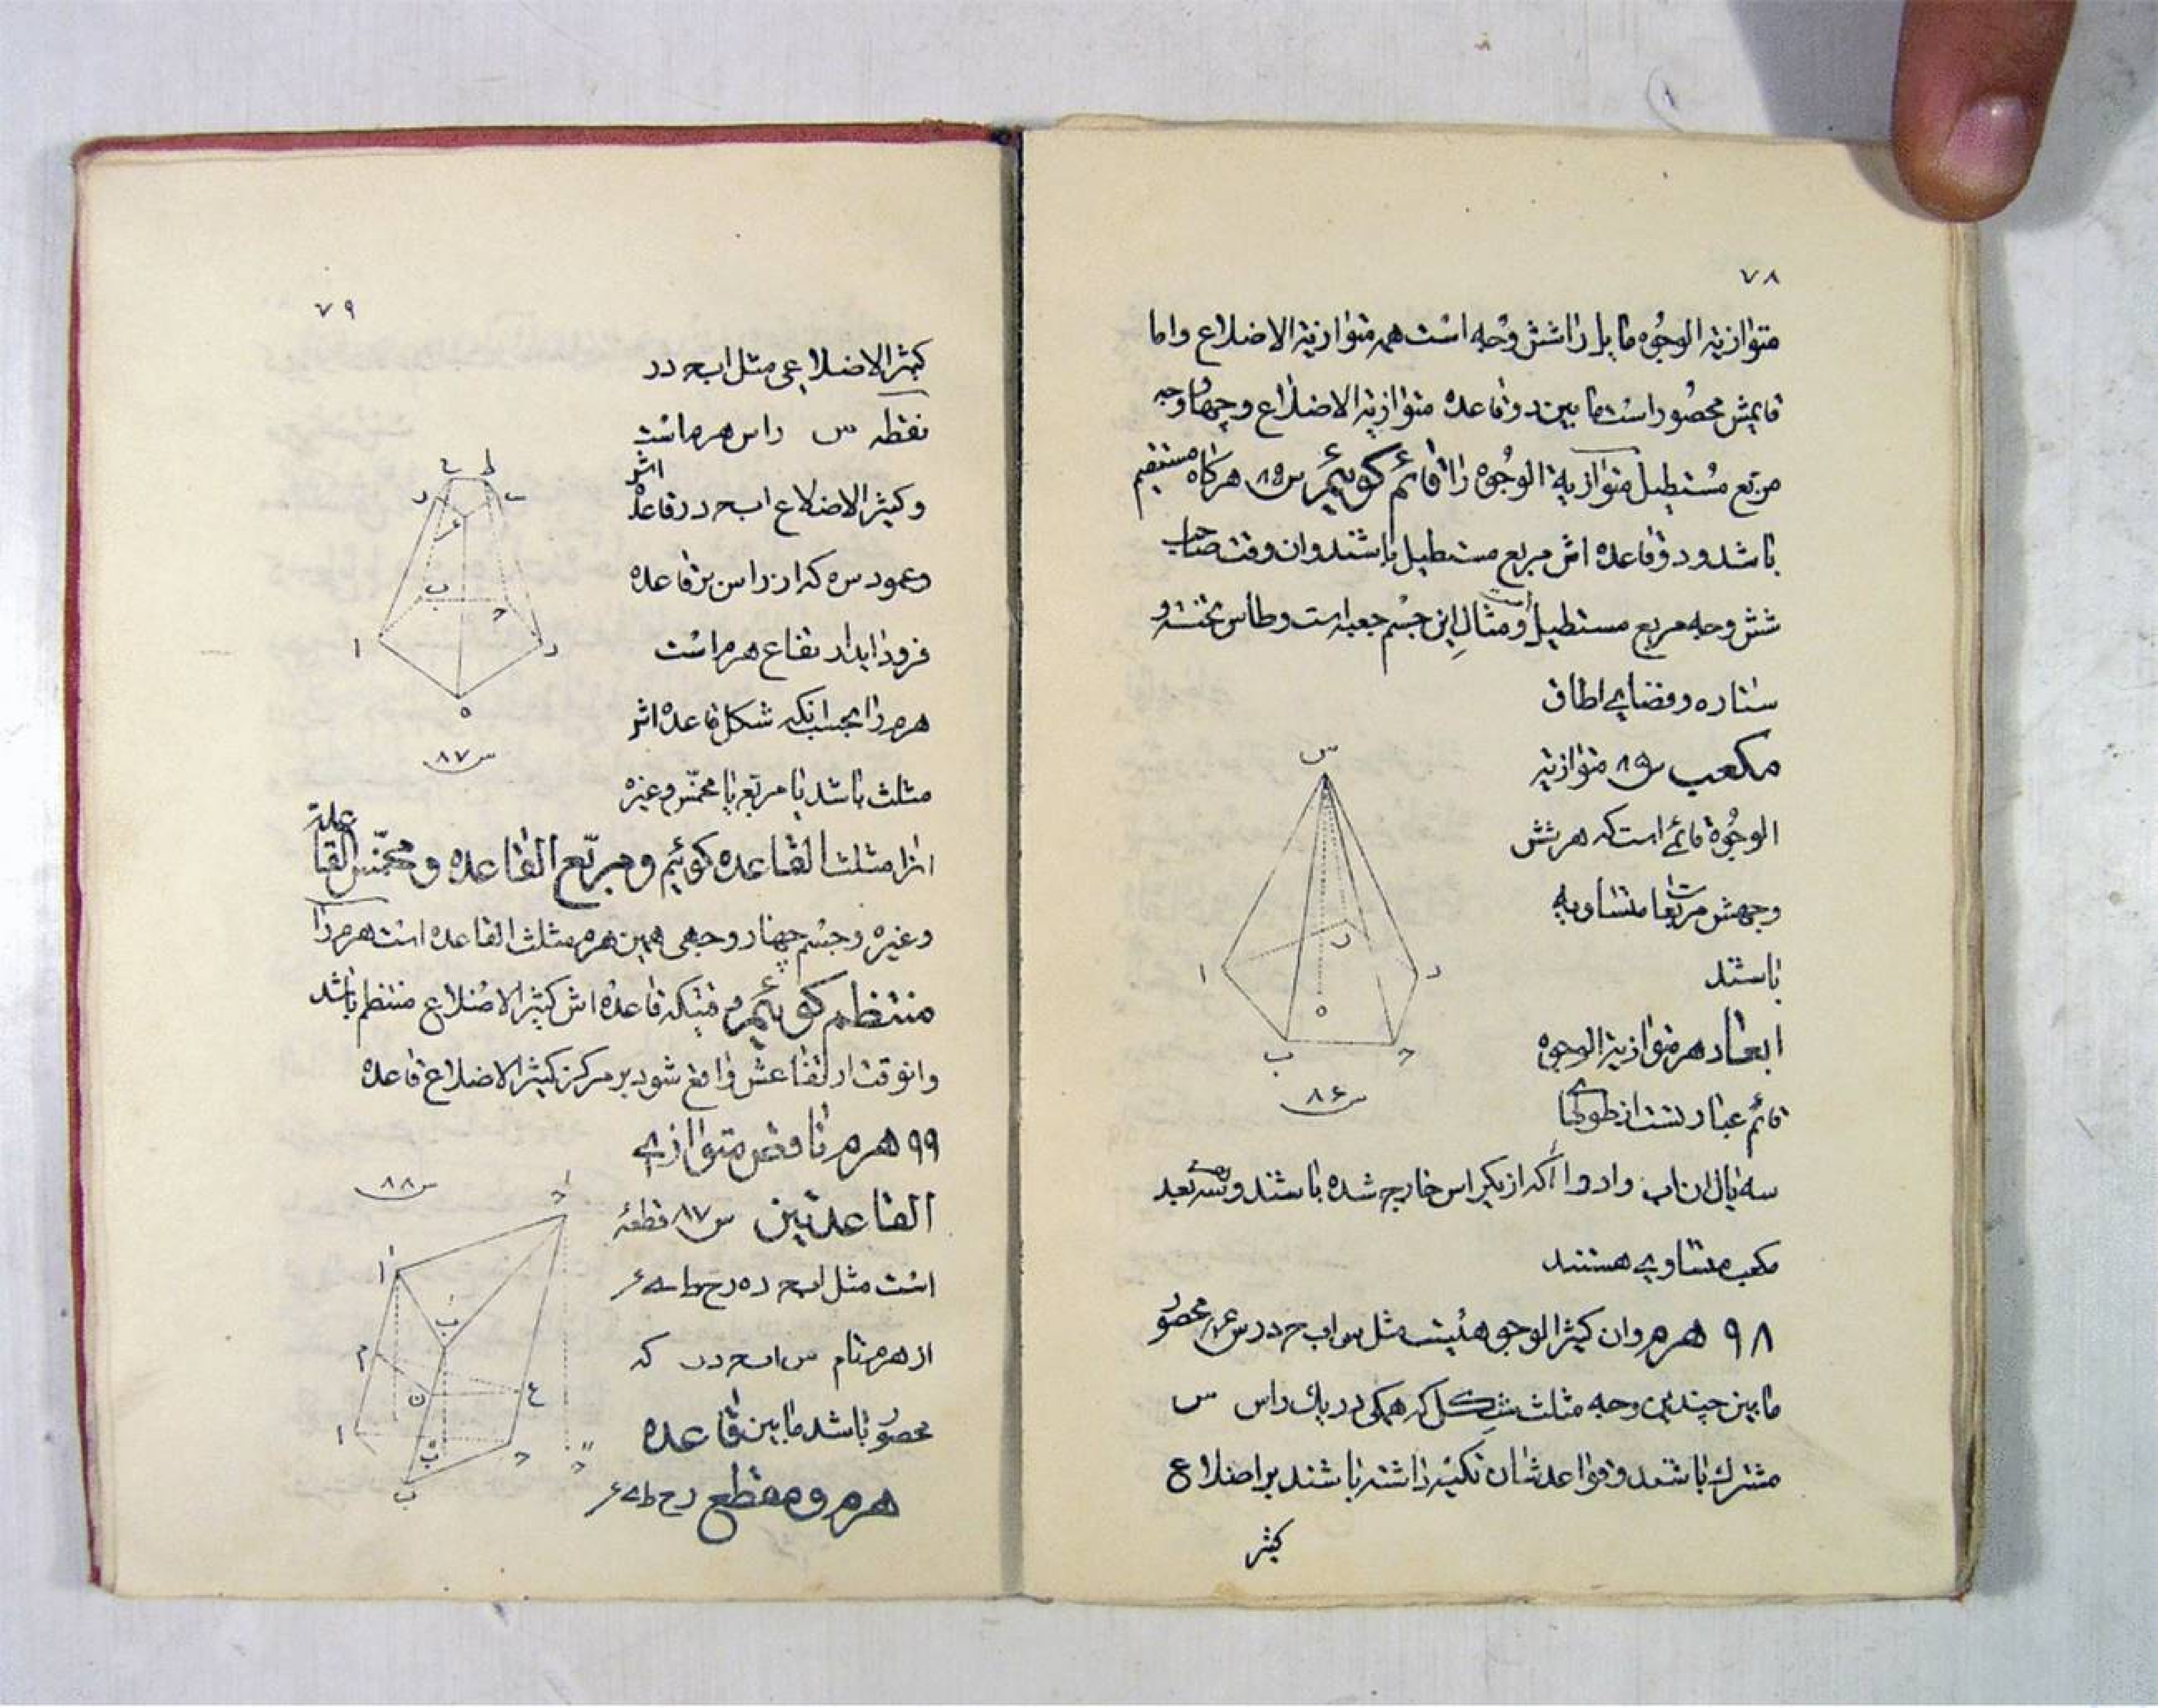 ٧٨
متوازیة الوجوه مایل را شش وجه است همه متوازیة الاضلاع واما
قایمش محصور است مابین دو قاعده متوازیة الاضلاع و چهار وجه
مربع مستطیل متوازیة الوجوه را قائم کوئیم س ٨٥ هرکاه مستقیم
باشد و دو قاعده اش مربع مستطیل باشند وان وقت صاحب
شش وجه مربع مستطیل است ومثال این جسم جعبه است وطاس تخته و
ستاره وفضای اطاق
مکعب س ٨٥ متوازیة
الوجوه قائمی است که هر شش
وجهش مربعات متساویه
باشند
ابعاد هر متوازیة الوجوه
قائم عبارتست از طولهای
سه یال ان اب واد و اا که از یکراس خارج شده باشند و سه بعد
مکعب متساوی هستند
٩٨ هرم وان کثیر الوجوهیست مثل س اب ح د ر س ٨۶ محصور
مابین چندین وجه مثلث شکل که همکی در یك راس س
مشترك باشند و قواعدشان تکیه داشته باشند بر اضلاع
کثیر
س
ا
ب
ح
د
ر
ه
س ٨۶
٧٩
کثیر الاضلاعی مثل اب ح د ر
نقطه س راس هرم است
وکثیر الاضلاع اب ح د ر قاعده اش
وعمود س ه که از راس بر قاعده
فرود اید ارتفاع هرم است
هرم را بحسب انکه شکل قاعده اش
مثلث باشد یا مربع یا مخمس وغیره
انرا مثلث القاعده کوئیم ومربع القاعده ومخمس القاعده
وغیره وجسم چهار وجهی همین هرم مثلث القاعده است هرم را
منتظم کوئیم وقتیکه قاعده اش کثیر الاضلاع منتظم باشد
وانوقت ارتفاعش واقع شود بر مرکز کثیر الاضلاع قاعده
٩٩ هرم ناقص متوازی
القاعدتین س ٨٧ قطعهٔ
است مثل اب ح د ه
از هرم تمام س اب ح د ر که
محصور باشد مابین قاعده
هرم و مقطع
س ٨٧
س ٨٨